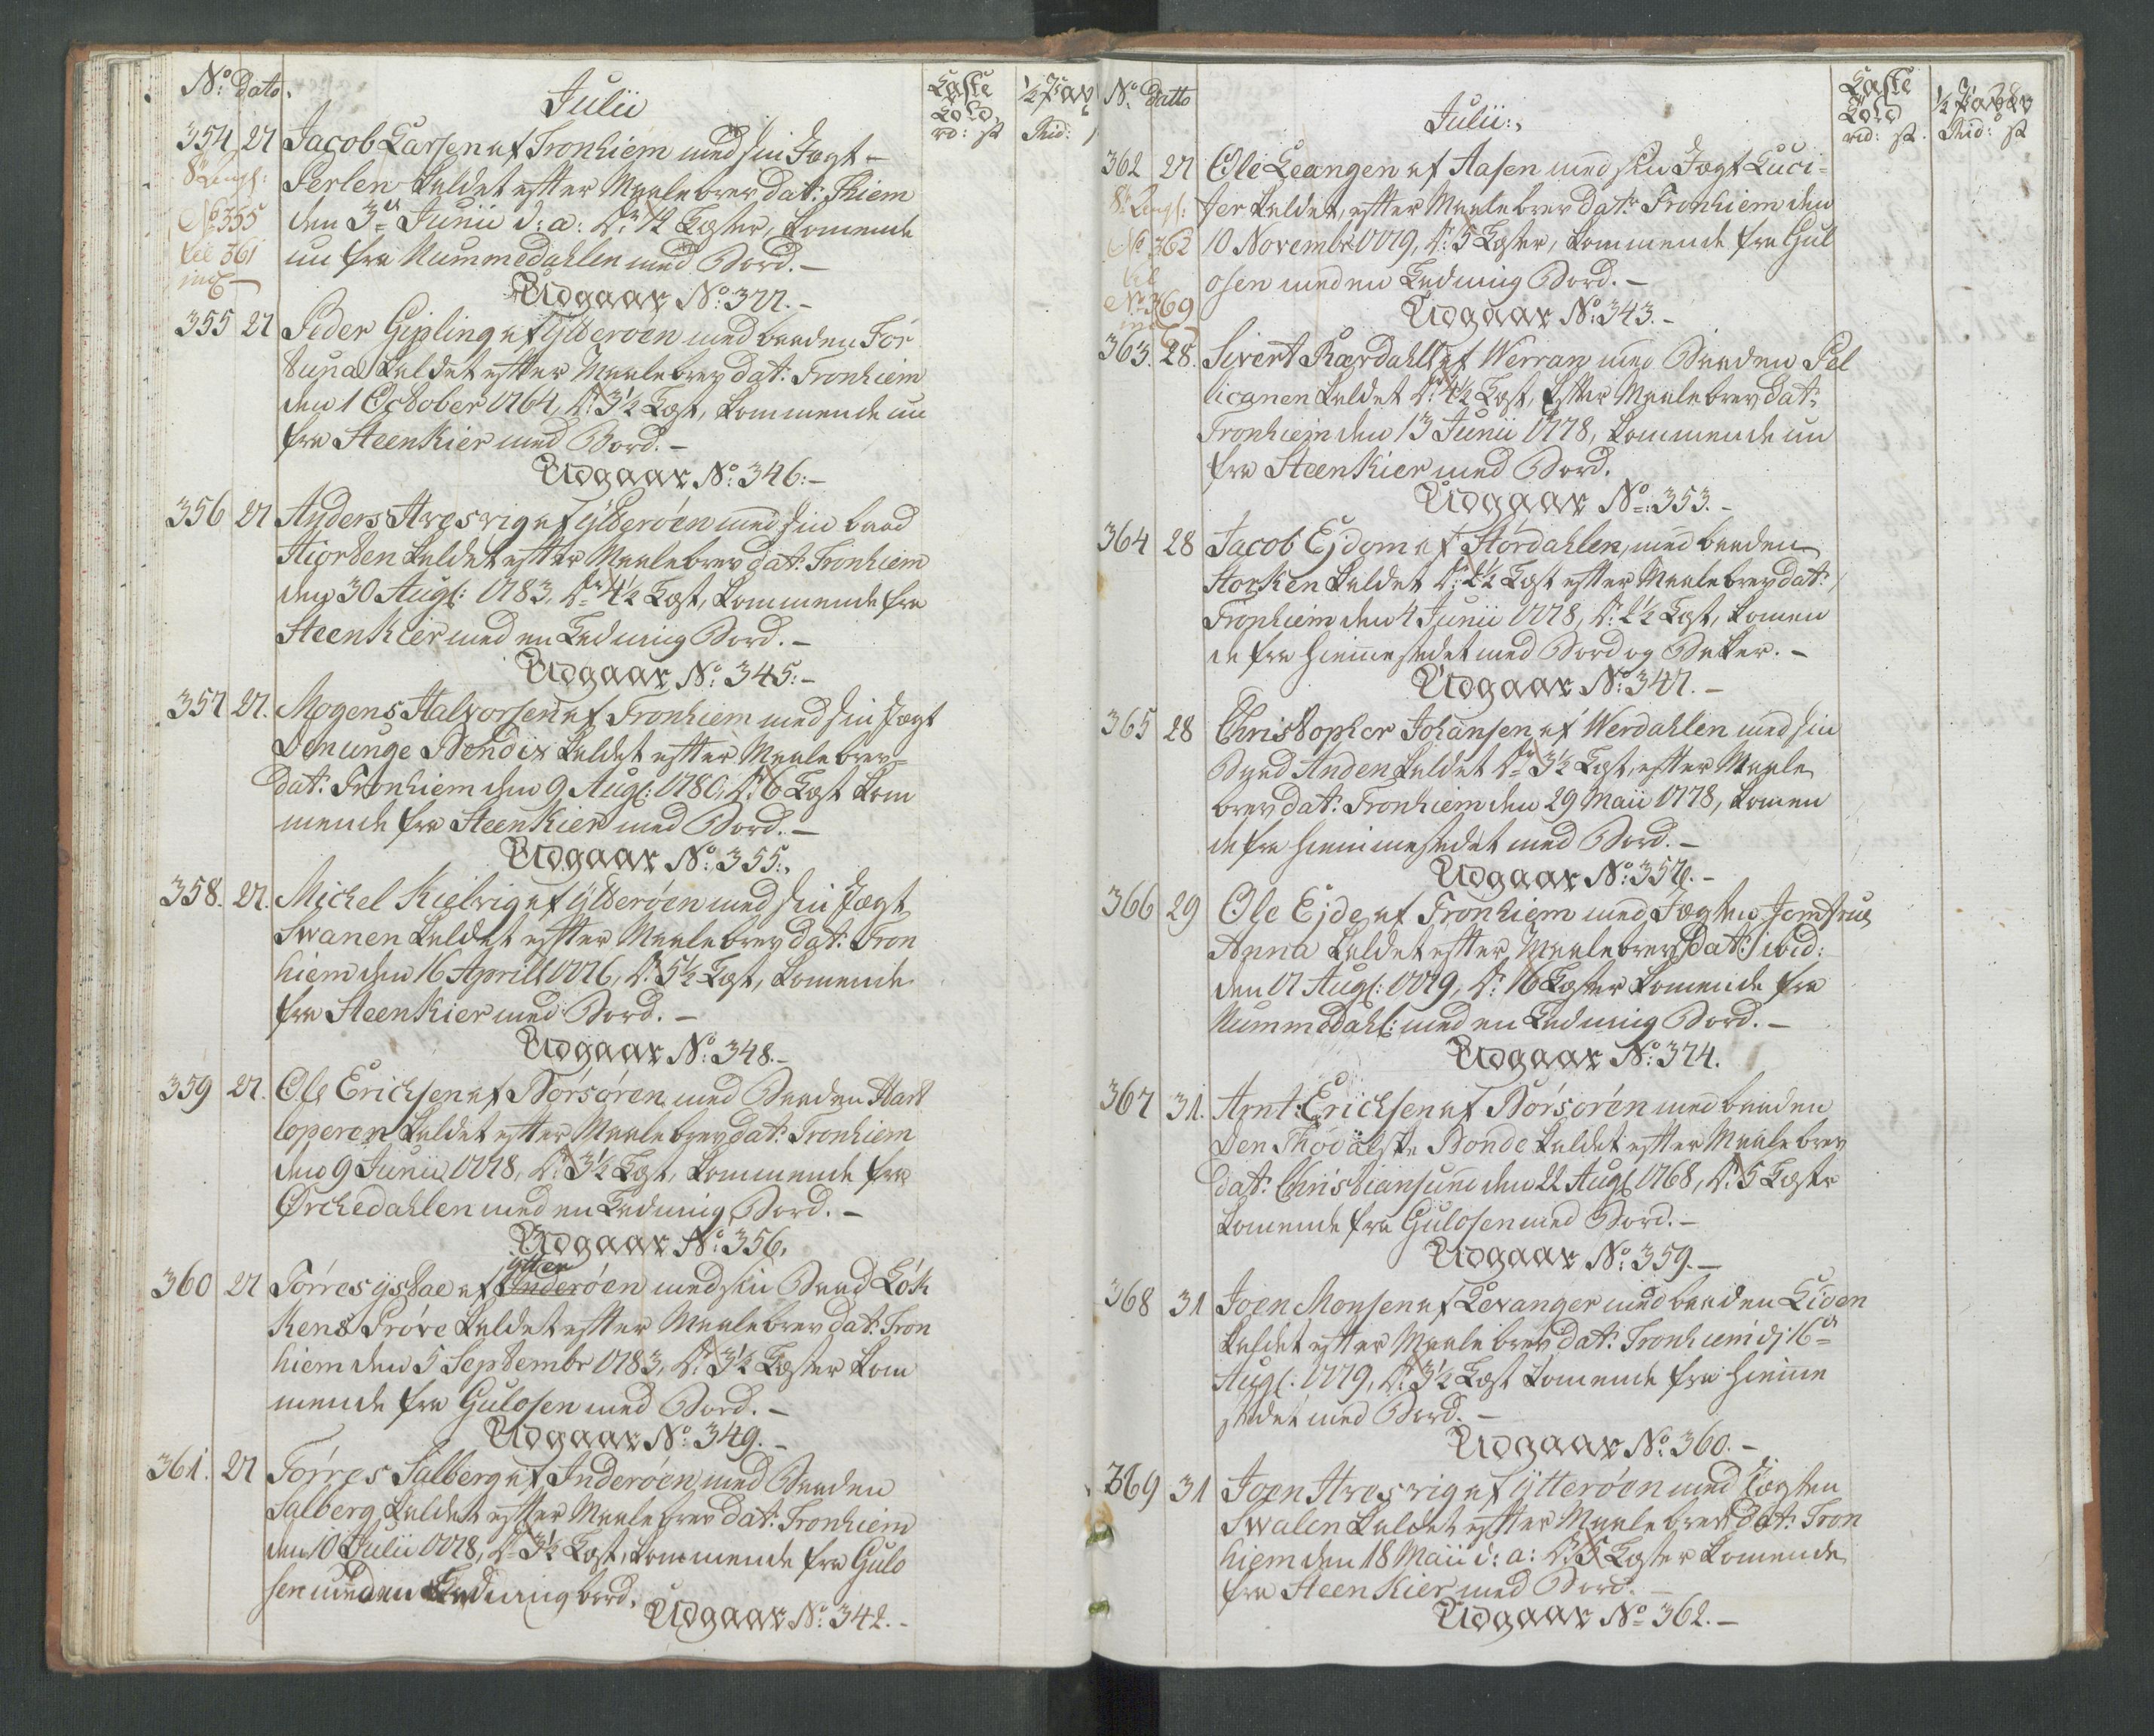 No: dato.
Julii
Laste
Told
rd: ſk
Rid:
354 27 Jacob Larsen af Tronhiem med sin Jagt
Perlen kaldet efter Maalebrev dat: Thiem
den 3de Junii d: a: Dr: 12 Læster, komende
nu fra Nummedahlen med Bord.
No 355
til 361
incl
Udgaar No: 377.
355 27 Peder Gipling af ÿtterøen med baaden For
tuna kaldet efter Maalebrev dat: Tronhiem
den 1 October 1764, Dr: 3½ Læst, kommende nu
fra Steenkier med Bord.
Udgaar No: 346:
356 27 Anders Hresvig af ÿtterøen med sin baad
Hiorten kaldet efter Maalebrev dat: Tronhiem
den 30 Augs: 1783, Dr: 4½ Læst, kommende fra
Steenkier med en Ladning Bord.
Udgaar No: 345:
357 27. Mogens Halvorsen af Tronhiem med sin Jagt
Den unge Bendix kaldet efter Maalebrev
dat: Tronhiem den 9 Augs: 1780, Dr: 6 Læst kom
mende fra Steenkier med Bord.
Udgaar No: 355:
358. 27. Michel Kielvig af ÿtterøen med sin Jagt
Swanen kaldet efter Maalebrev dat: Tron
hiem den 16 Aprill 1776, Dr: 5½ Læst, komende
fra Steenkier med Bord.
Udgaar No: 348.
359 27. Ole Erichsen af Børsøren med Baaden Hart
loperen kaldet efter Maalebrev dat: Tronhiem
den 9 Junii 1778, Dr: 3½ Læst, kommende fra
Ørchedahlen med en Ladning Bord.
Udgaar No: 356.
ÿtter
360 27 Torres ÿstae af Inderøen med sin Baad Løk
kens Prøve kaldet efter Maalebrev dat: Tron
hiem den 5 Septembr 1783, Dr: 3½ Læster kom
mende fra Gulosen med Bord.
Udgaar No: 349.
361. 27 Torres Salberg af Inderøen med Baaden
Salberg kaldet efter Maalebrev dat: Tronhiem
den 10 Julii 1778, Dr: 3½ Læst, kommende fra Gulo
sen med en Ladning bord.
Udgaar No: 342.
No: datto
Julii:
Laste
Told
rid: ſk.
Rid: ſk
362 27 Ole Leangen af Aasen med sin Jagt Luci-
fer kaldet, efter Maalebrev dat: Tronhiem den
10 Novembr 1779, Dr: 5 Læster, kommende fra Gul
osen med en Ladning Bord.
No 362
til
No 369
Udgaar No: 343.
363. 28. Sivert Rærdahl af Werran med Baaden Pel
licanen kaldet Dr: 4½ Læst, Efter Maalebrev dat:
Tronhiem den 13 Junii 1778, kommende nu
fra Steenkier med Bord.
Udgaar No: 353.
364 28 Jacob Ejdom af Størdahlen, med baaden
Storken kaldet Dr: 2½ Læst efter Maalebrev dat:
Tronhiem den 4 Junii 1778, Dr: 2½ Læst, komen
de fra hiemmestedet med Bord og Baker.
Udgaar No: 347.
365 28 Christopher Johansen af Werdahlen med sin
Baad Anden kaldet Dr: 3½ Læst, efter Maale
brev dat: Tronhiem den 29 Maii 1778, komen
de fra hiemmestedet med Bord.
Udgaar No: 357.
366 29 Ole Ejde af Tronhiem med Jagten Jomfrue
Anna kaldet efter Maalebrev dat: ibid:
den 17 Augs: 1779, Dr: 16 Læster komende fra
Nummedahl: med en Ladning Bord.
Udgaar No: 374.
367 31. Arnt: Erichsen af Børsøren med baaden
Den Thodalske Bonde kaldet efter Maalebrev
dat: Christiansund den 22 Augs 1768, Dr: 5 Læster
komende fra Gulosen med Bord.
Udgaar No: 359.
368 31 Joen Monsen af Levanger med baaden Liven
kaldet efter Maalebrev dat: Tronhiem d: 16de
Augs: 1779, Dr: 3½ Læst komende fra hiemme
stedet med Bord.
Udgaar No: 360.
369 31 Joen Hresvig af ÿtterøen med Jagten
Swalen kaldet efter Maalebrev dat: Tron
hiem den 18 Maii d: a: Dr: 5 Læster komende
fra Steenkier med Bord.
Udgaar No: 362.